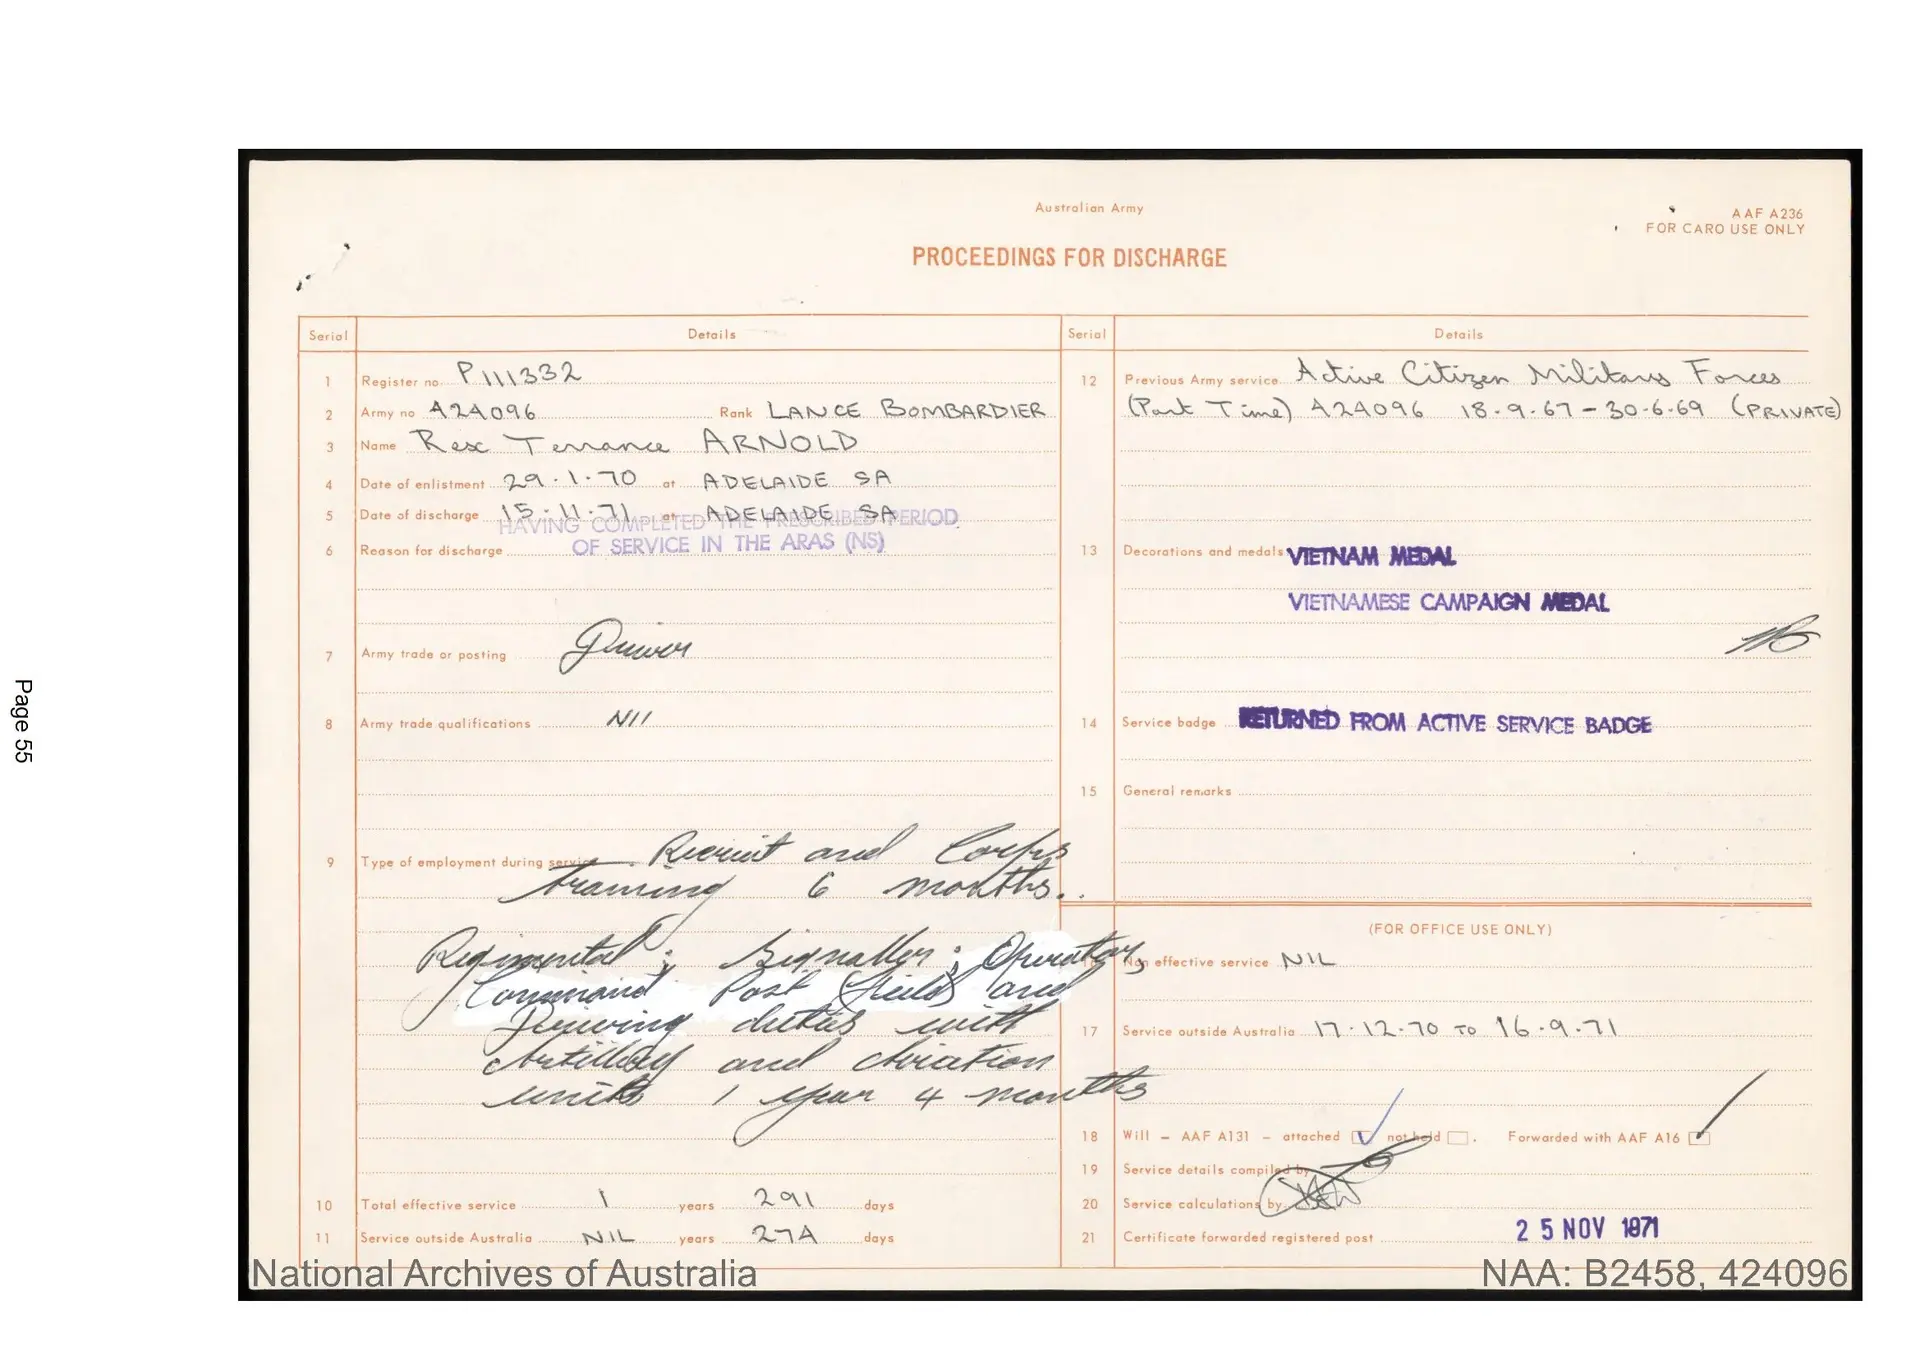 Page 55
Australian Army
AAF A236
FOR CARO USE ONLY
PROCEEDINGS FOR DISCHARGE
Serial Details
1 Register no. P111332
2 Army no 424096 Rank LANCE BOMBARDIER
3 Name Rex Terrance ARNOLD
4 Date of enlistment 29.1.70 at ADELAIDE SA
5 Date of discharge 15.11.71 at ADELAIDE SA
HAVING COMPLETED THE PRESCRIBED PERIOD
6 Reason for discharge OF SERVICE IN THE ARAS (NS)
7 Army trade or posting Driver
8 Army trade qualifications Nil
9 Type of employment during service Recruit and Corps
training 6 months.
Regimental; Signaller; Operator,
Command Post Field and
Driving duties with
Artillery and Aviation
units 1 year 4 months
10 Total effective service 1 years 291 days
11 Service outside Australia NIL years 274 days
Serial Details
12 Previous Army service Active Citizen Military Forces
(Part Time) 424096 18-9-67-30-6-69 (PRIVATE)
13 Decorations and medals VIETNAM MEDAL
VIETNAMESE CAMPAIGN MEDAL
14 Service badge RETURNED FROM ACTIVE SERVICE BADGE
15 General remarks
(FOR OFFICE USE ONLY)
16 Non effective service NIL
17 Service outside Australia 17.12.70 TO 16.9.71
18 Will - AAF A131 - attached not held . Forwarded with AAF A16
19 Service details compiled by
20 Service calculations by
21 Certificate forwarded registered post 25 NOV 1971
National Archives of Australia
NAA: B2458, 424096